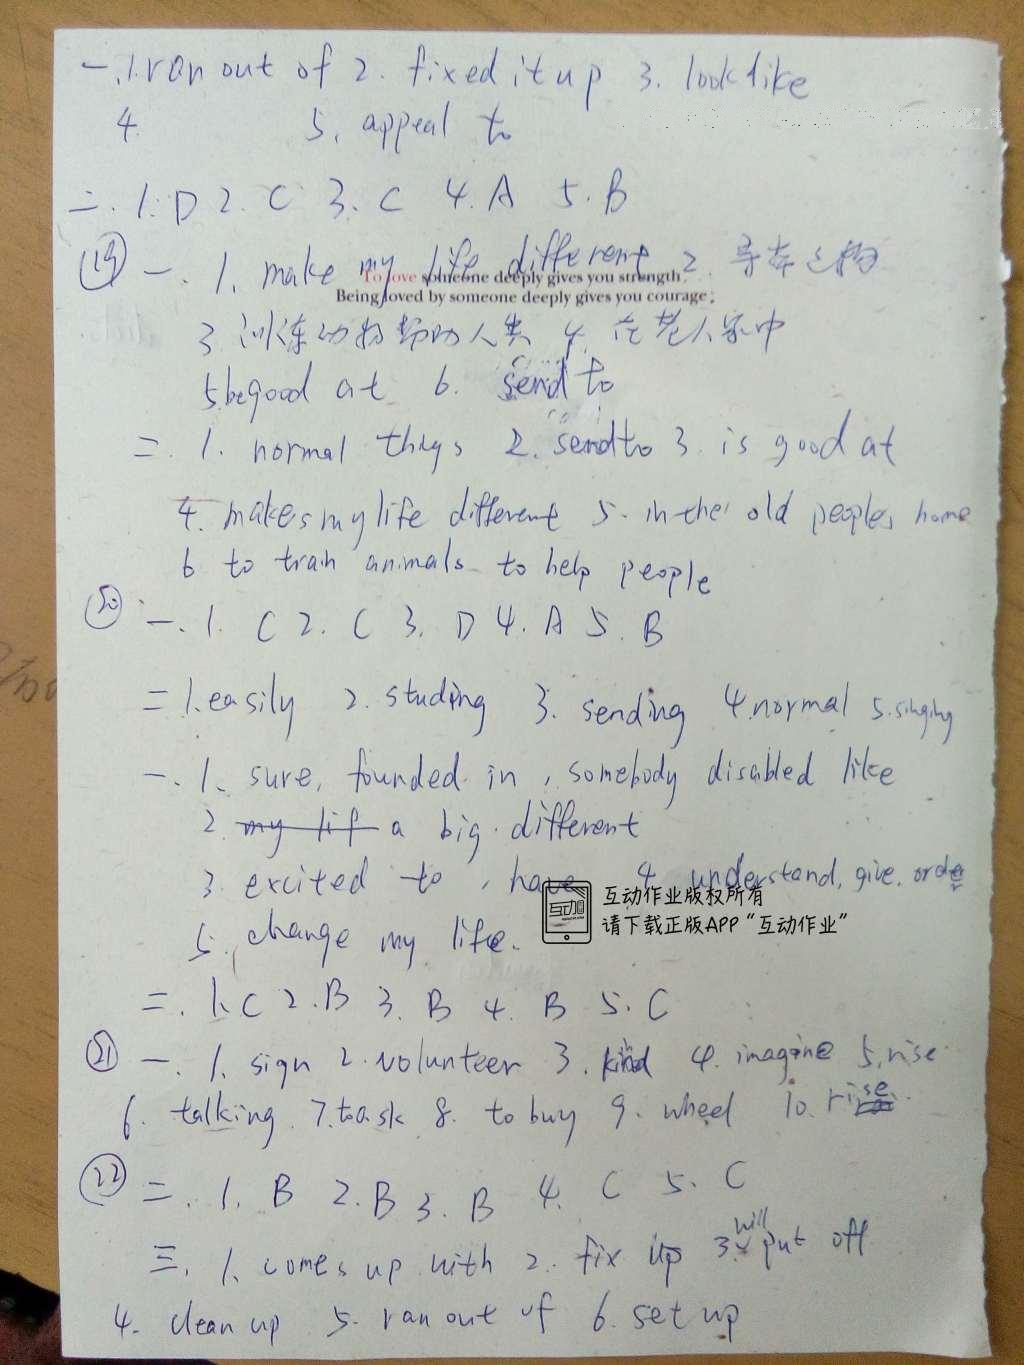 一.1.ran out of 2. fixed it up 3. look like
4. 5. appeal to
二. 1. D 2. C 3. C 4. A 5. B
19 一. 1. make my life different 2. 导车之狗
To love someone deeply gives you strength.
Being loved by someone deeply gives you courage.
3. 训练动物帮助人类 4. 在老人家中
5.be good at 6. send to
二. 1. normal things 2. send to 3. is good at
4. makes my life different 5. in the old people's home
6 to train animals to help people
20 一. 1. C 2. C 3. D 4. A 5. B
二 1.easily 2. studing 3. sending 4.normal 5.singing
一. 1. sure, founded in, somebody disabled like
2. a big different
3. excited to, have 4. understand, give. order
互动作业版权所有
请下载正版APP“互动作业”
5. change my life.
二. 1. C 2. B 3. B 4. B 5. C
21 一. 1. sign 2. volunteer 3. kind 4. imagine 5. rise
6. talking 7. to ask 8. to buy 9. wheel 10. rise
22 二. 1. B 2. B 3. B 4. C 5. C
三. 1. comes up with 2. fix up 3. will put off
4. clean up 5. ran out of 6. set up